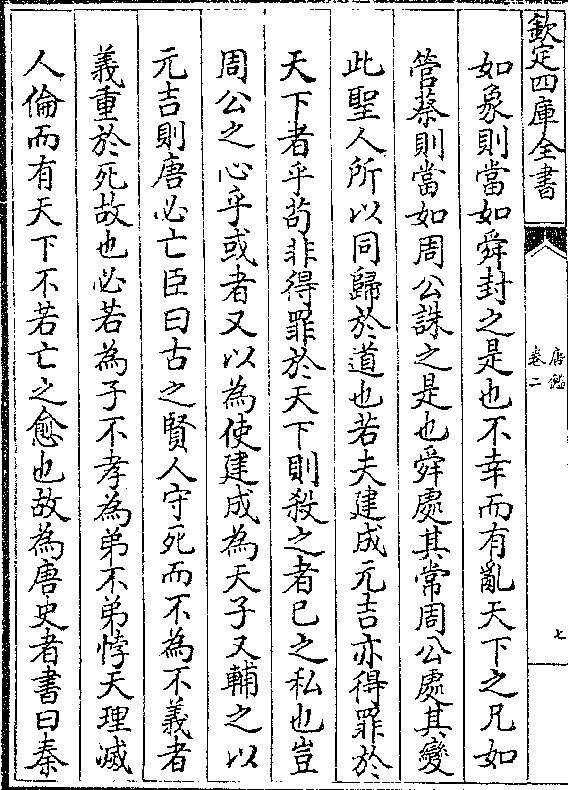 欽定四庫全書
唐鑑
卷二
七
如象則當如舜封之是也不幸而有亂天下之凡如
管蔡則當如周公誅之是也舜處其常周公處其變
此聖人所以同歸於道也若夫建成元吉亦得罪於
天下者乎苟非得罪於天下則殺之者己之私也豈
周公之心乎或者又以為使建成為天子又輔之以
元吉則唐必亡臣曰古之賢人守死而不為不義者
義重於死故也必若為子不孝為弟不弟悖天理滅
人倫而有天下不若亡之愈也故為唐史者書曰秦